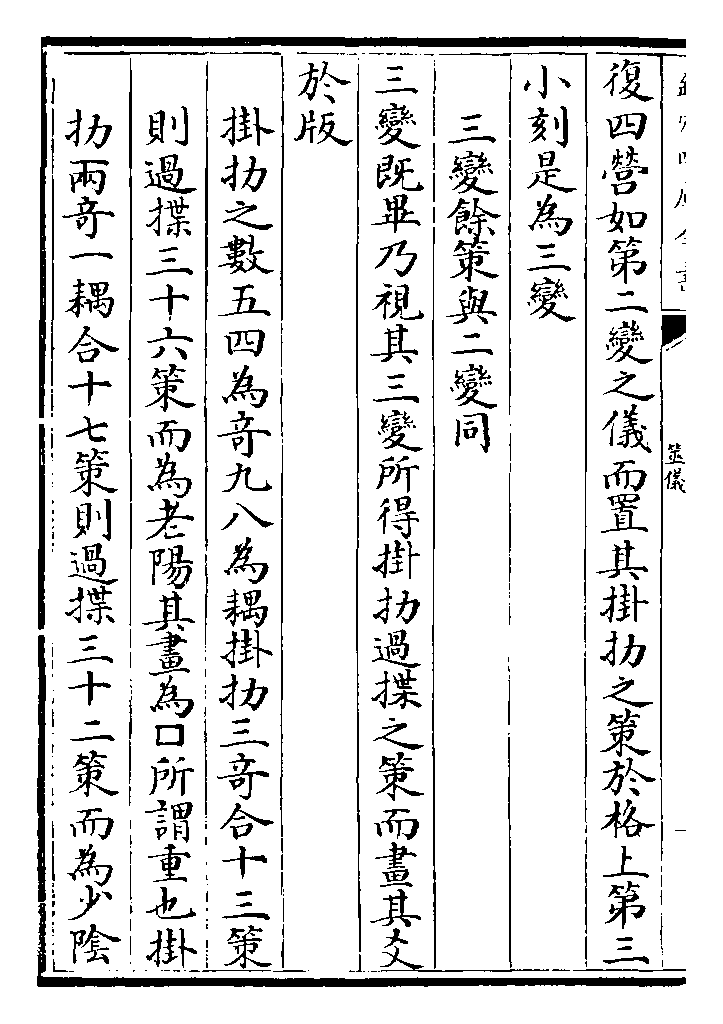 筮儀
復四營如第二變之儀而置其掛扐之策於格上第三
小刻是為三變
三變餘策與二變同
三變既畢乃視其三變所得掛扐過揲之策而畫其爻
於版
掛扐之數五四為竒九八為耦掛扐三竒合十三策
則過揲三十六策而為老陽其畫為口所謂重也掛
扐兩竒一耦合十七策則過揲三十二策而為少陰